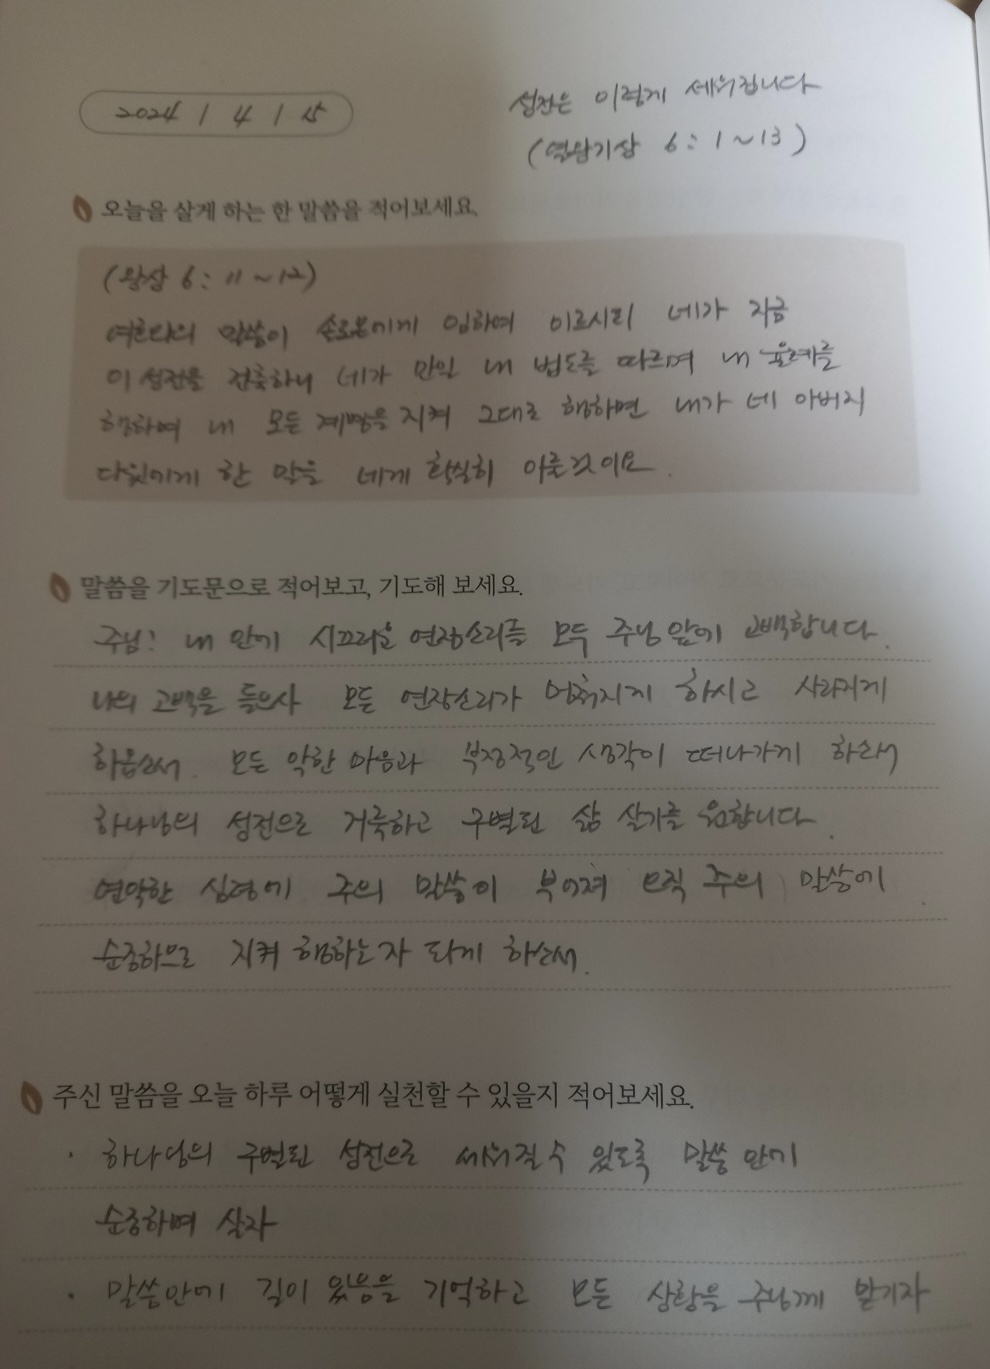 2024 / 4 / 15
성전은 이렇게 세워집니다
(열왕기상 6:1~13)
오늘을 살게 하는 한 말씀을 적어보세요.
(왕상 6:11~12)
여호와의 말씀이 솔로몬에게 임하여 이르시되 네가 지금
이 성전을 건축하니 네가 만일 내 법도를 따르며 내 율례를
행하며 내 모든 계명을 지켜 그대로 행하면 내가 네 아버지
다윗에게 한 말을 네게 확실히 이룰것이요.
말씀을 기도문으로 적어보고, 기도해 보세요.
주님! 내 안에 시끄러운 연장소리를 모두 주님앞에 고백합니다.
나의 고백을 들으사 모든 연장소리가 멈춰지게 하시고 사라지게
하옵소서. 모든 악한 마음과 부정적인 생각이 떠나가게 하소서
하나님의 성전으로 거룩하고 구별된 삶 살기를 원합니다.
연약한 심령에 주의 말씀이 부어져 오직 주의 말씀에
순종하므로 지켜 행하는자 되게 하소서.
주신 말씀을 오늘 하루 어떻게 실천할 수 있을지 적어보세요.
· 하나님의 구별된 성전으로 세워질 수 있도록 말씀 안에
순종하며 살자
· 말씀안에 길이 있음을 기억하고 모든 상황을 주님께 맡기자